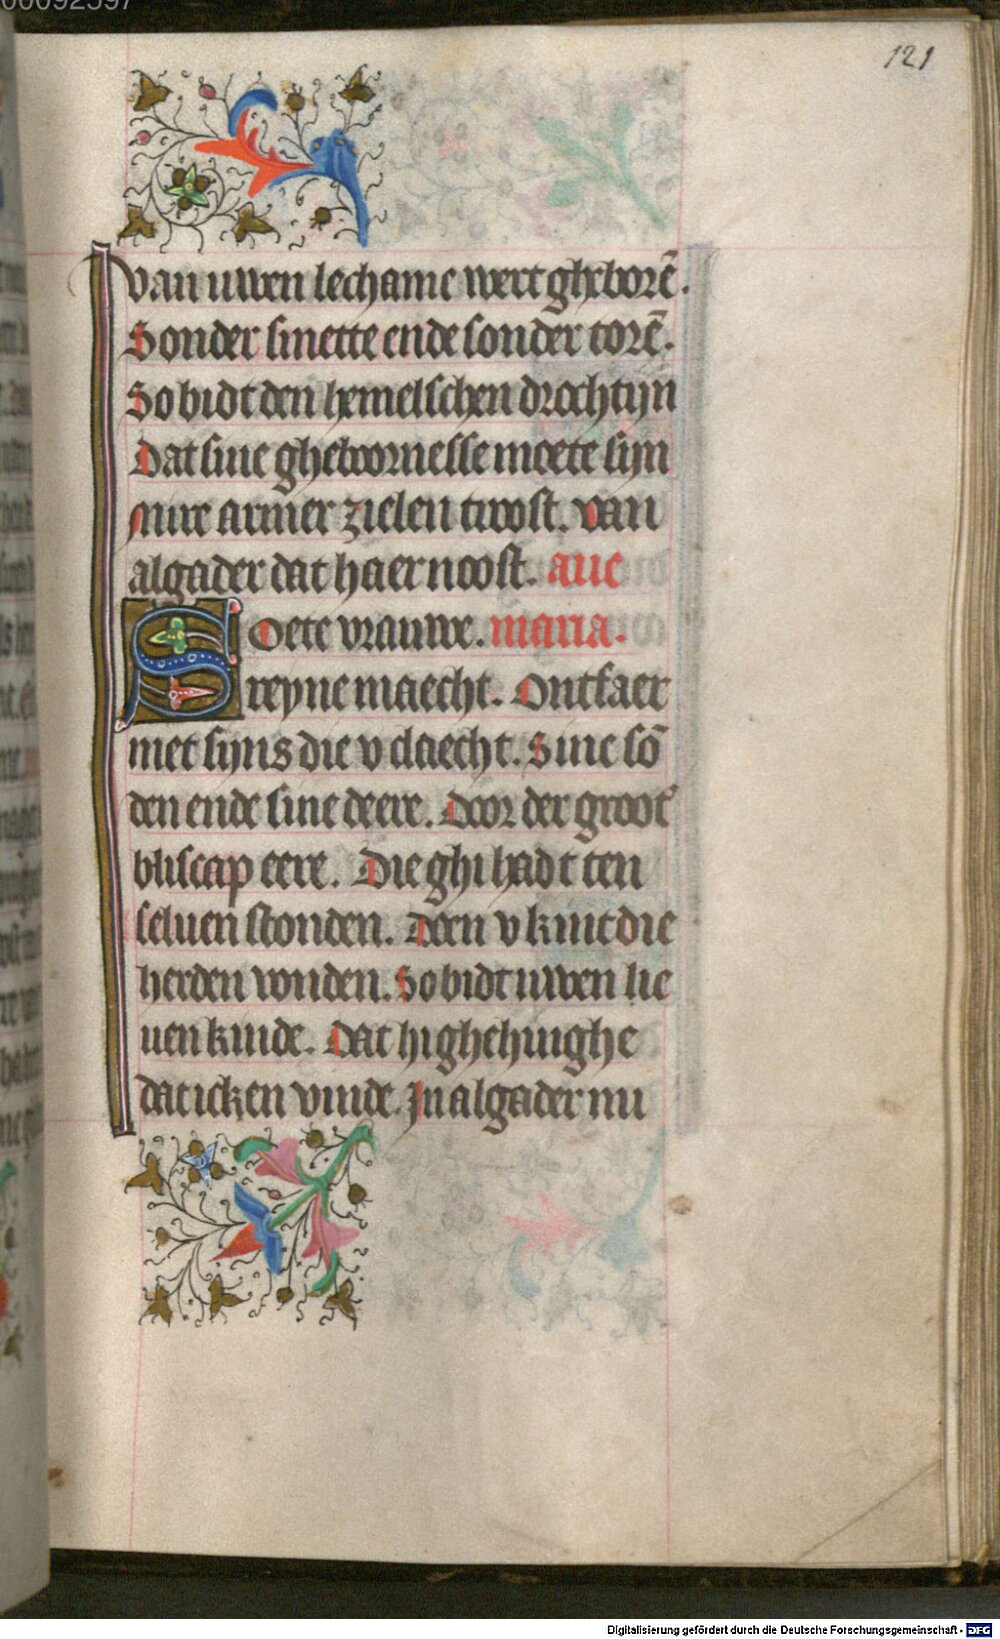 00092597
121
van uwen lechame wert gheborē.
Sonder smette ende sonder torē.
So bidt den hemelschen drochtijn
Dat sine gheboornesse moete sijn
mire armer zielen troost. van
algader dat haer noost. aue
Soete vrauwe. maria.
reyne maecht. Ontfaer
met sijns die v claecht. Sine sō
den ende sine deere. Door der groot'
bliscap eere. Die ghi hadt ten
seluen stonden. Doen v kint die
herden vonden. So bidt uwen lie
uen kinde. Dat hi ghehinghe
dat icken vinde. In algader mi
Digitalisierung gefördert durch die Deutsche Forschungsgemeinschaft - DFG